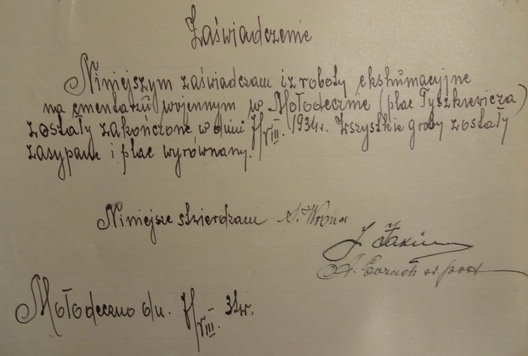 Zaświadczenie
Niniejszym zaświadczam iż roboty ekshumacyjne
na cmentarzu wojennym w Mołodecznie (plac Tyszkiewicza)
zostały zakończone w dniu VIII. 1934r. Wszystkie groby zostały
zasypane i plac wyrównany.
Niniejsze stwierdzam
Mołodeczno d/n. VIII. 34r.